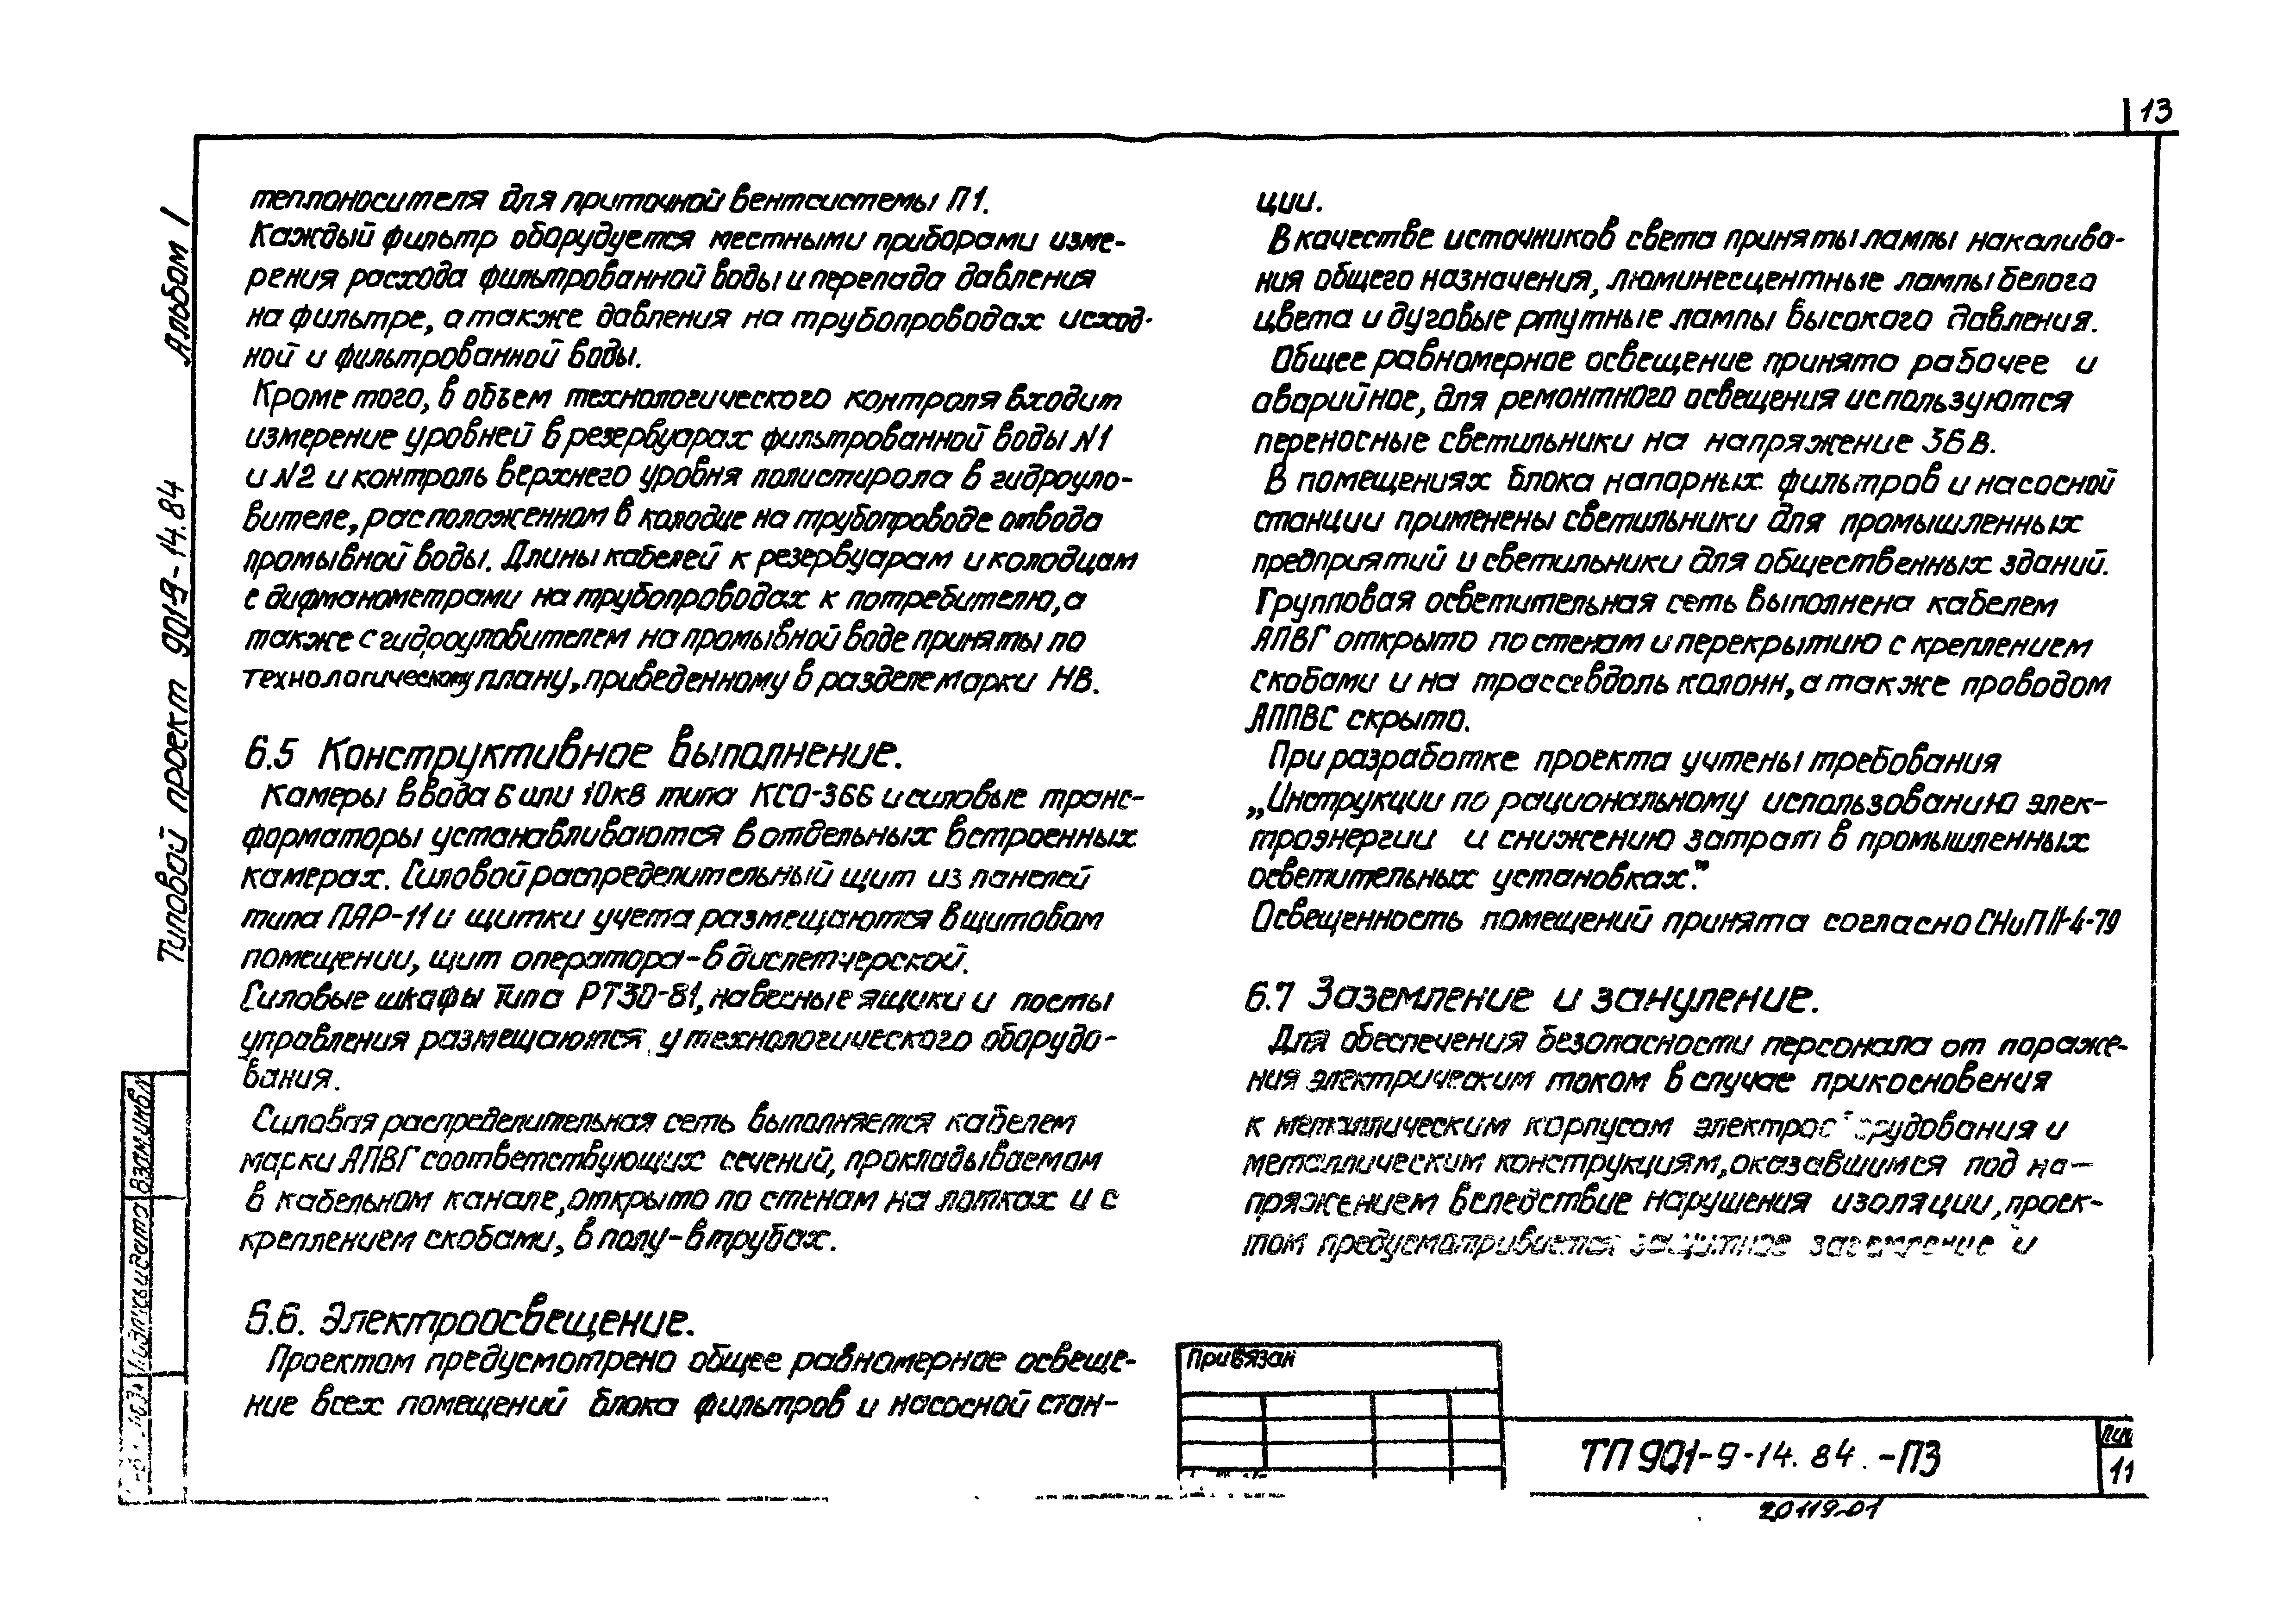 13
Альбом I
Типовой проект 901-9-14.84
теплоносителя для приточной вентсистемы П1.
Каждый фильтр оборудуется местными приборами изме-
рения расхода фильтрованной воды и перепада давления
на фильтре, а также давления на трубопроводах исход-
ной и фильтрованной воды.
Кроме того, в объем технологического контроля входит
измерение уровней в резервуарах фильтрованной воды N1
и N2 и контроль верхнего уровня полистирола в гидроуло-
вителе, расположенном в колодце на трубопроводе отвода
промывной воды. Длины кабелей к резервуарам и колодцам
с дифманометрами на трубопроводах к потребителю, а
также с гидроуловителем на промывной воде приняты по
технологическому плану, приведенному в разделе марки НВ.
6.5 Конструктивное выполнение.
Камеры ввода 6 или 10кв типа КСО-366 и силовые транс-
форматоры устанавливаются в отдельных встроенных
камерах. Силовой распределительный щит из панелей
типа ПАР-11 и щитки учета размещаются в щитовом
помещении, щит оператора-в диспетчерской.
Силовые шкафы типа РТЗО-81, навесные ящики и посты
управления размещаются у технологического оборудо-
вания.
Силовая распределительная сеть выполняется кабелем
марки АПВГ соответствующих сечений, прокладываемом
в кабельном канале, открыто по стенам на лотках и с
креплением скобами, в полу-в трубах.
6.6. Электроосвещение.
Проектом предусмотрено общее равномерное освеще-
ние всех помещений блока фильтров и насосной стан-
ции.
В качестве источников света приняты лампы накалива-
ния общего назначения, люминесцентные лампы белого
цвета и дуговые ртутные лампы высокого давления.
Общее равномерное освещение принято рабочее и
аварийное, для ремонтного освещения используются
переносные светильники на напряжение 36В.
В помещениях блока напорных фильтров и насосной
станции применены светильники для промышленных
предприятий и светильники для общественных зданий.
Групповая осветительная сеть выполнена кабелем
АПВГ открыто по стенам и перекрытию с креплением
скобами и на трассе вдоль колонн, а также проводом
АППВС скрыто.
При разработке проекта учтены требования
„Инструкции по рациональному использованию элек-
троэнергии и снижению затрат в промышленных
осветительных установках."
Освещенность помещений принята согласно СНиП II-4-79
6.7 Заземление и зануление.
Для обеспечения безопасности персонала от пораже-
ния электрическим током в случае прикосновения
к металлическим корпусам электрооборудования и
металлическим конструкциям, оказавшимся под на-
пряжением вследствие нарушения изоляции, проек-
том предусматривается защитное заземление и
Привязан
ТП 901-9-14.84.-ПЗ
Лист
11
20119-01
Взам.инв.
Подпись и дата